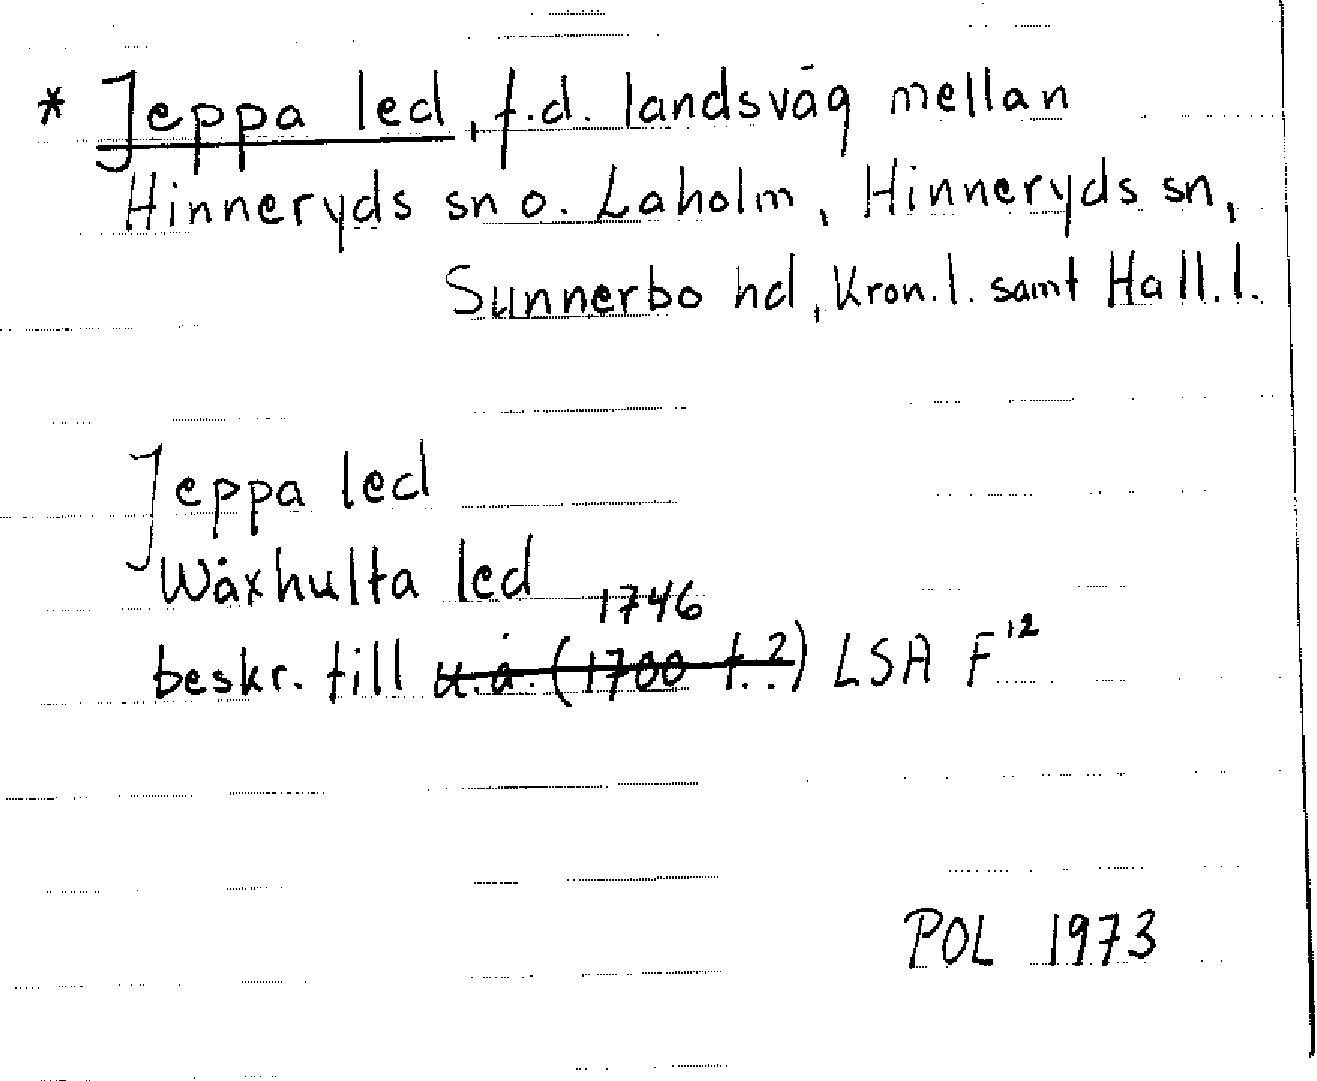 * Jeppa led, f.d. landsväg mellan
Hinneryds sn o. Laholm, Hinneryds sn,
Sunnerbo hd, Kron.l. samt Hall.l.
Jeppa led
Wåxhulta led
1746
beskr. till u.å. (1700 t.?) LSA F¹²
POL 1973